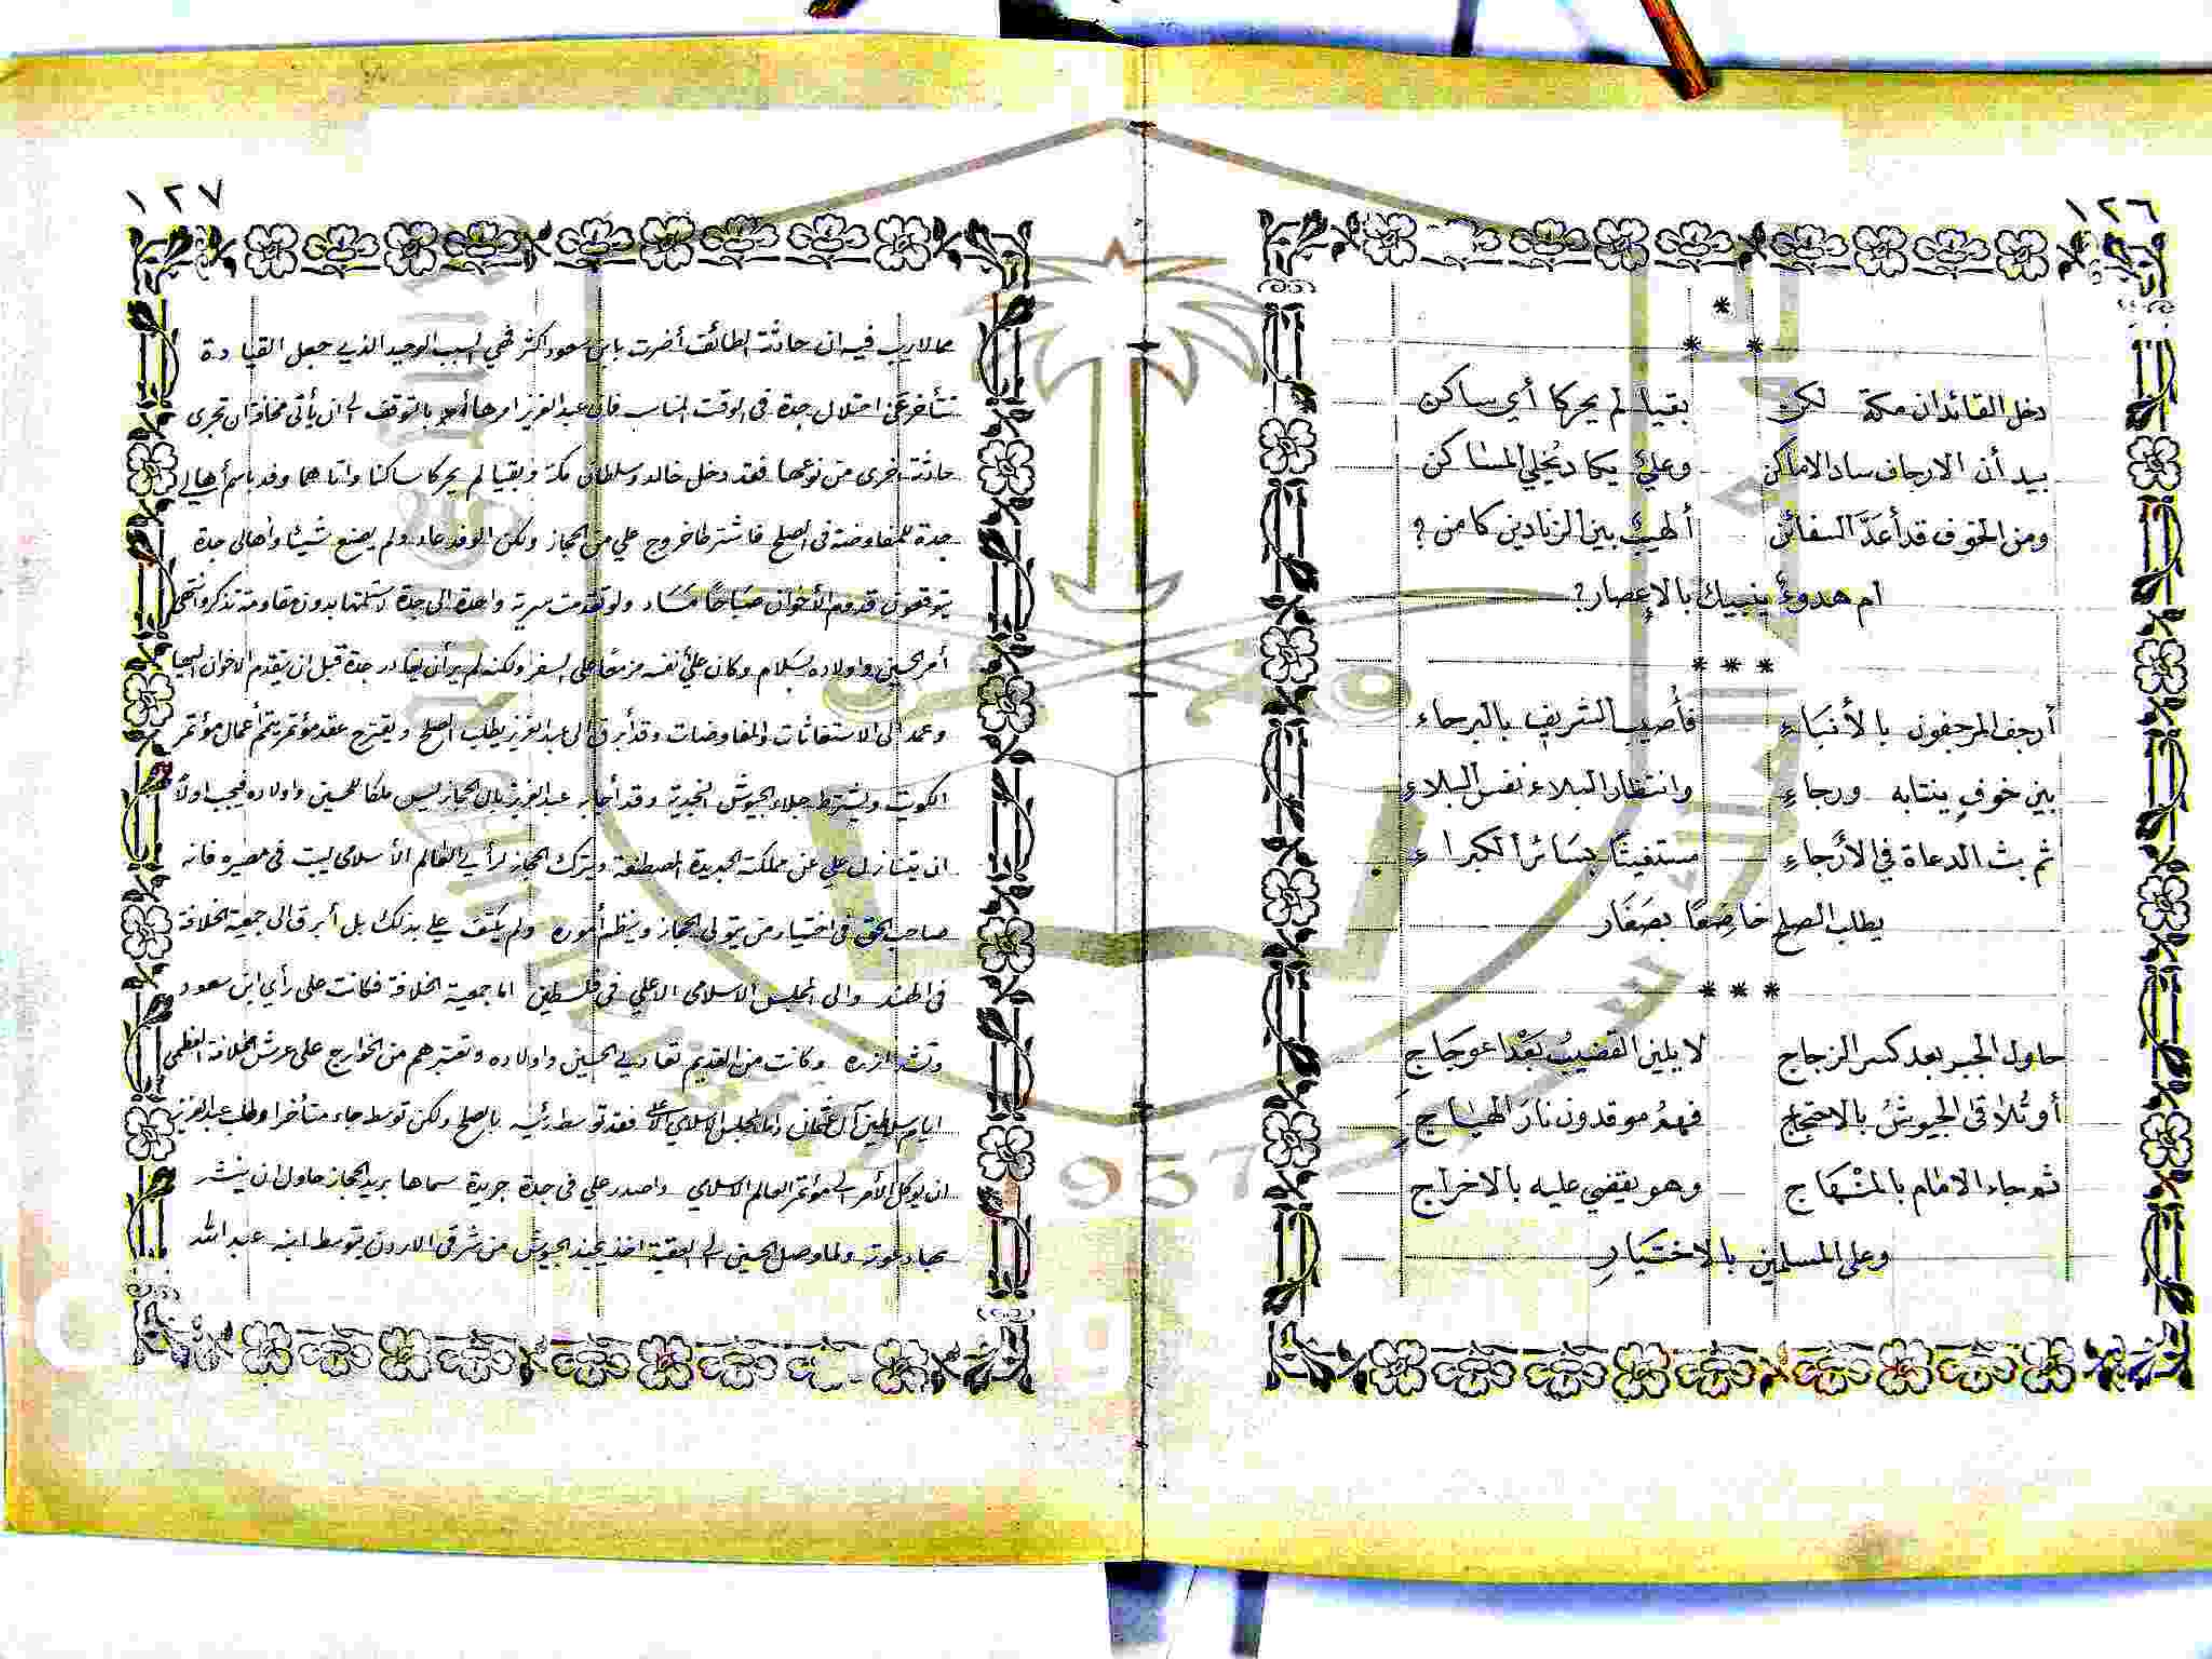 ١٢٦
*
* *
دخل القائدان مكة لكن بقيا لم يحركا أي ساكن
بيد أن الارجاف ساد الاماكن وعليّ يكاد يُخلي المساكن
ومن الخوف قد أعدَّ السفائن ألهيبٌ بين الزنادين كامن ؟
ام هدوءٌ ينبيك بالإعصار ?
* * *
أرجف المرجفون بالأنباء فأصيب الشريف بالبرحاء
بين خوفٍ ينتابه ورجاءِ وانتظار البلاء نفس البلاءِ
ثم بث الدعاة في الأرجاءِ مستغيثًا بسائر الكبراءِ
يطلب الصلح خاضعًا بصَغَار
* * *
حاول الجبر بعد كسر الزجاج لا يلين القضيبُ بَعْدَ اعوجَاج
أو تُلاقى الجيوشُ بالاحتجاج فهمُ موقدون نارَ الهياج
ثم جاء الامام بالمنْهَاج وهو يقضي عليه بالاخراج
وعلى المسلمين بالاختيَارِ
١٢٧
مما لاريب فيه ان حادثة الطائف أضرت بابن سعود اكثر فهي السبب الوحيد الذي جعل القيادة
تتأخر عن احتلال جدة في الوقت المناسب فان عبد العزيز امرها بالتوقف الى ان يأتي مخافة ان تجرى
حادثة اخرى من نوعها فقد دخل خالد وسلطان مكة وبقيا لم يحركا ساكنا واتاهما وفد باسم أهالي
جدة للمفاوضة في الصلح فاشترطا خروج علي من الحجاز ولكن الوفد عاد ولم يصنع شيئا وأهالى جدة
يتوقعون قدوم الأخوان صَبَاحًا مَسَاء ولو تقدمت سرية واحدة الى جدة لاستلمتها بدون مقاومة تذكر وانتهى
أمر الحسين واولاده بسَلام وكان عليٌ نفسه مزمعًا على السفر ولكنه لم ير أن يغادر جدة قبل ان يتقدم الاخوان اليها
وعمد الى الاستغاثات والمفاوضات وقد أبرق الى عبد العزيز يطلب الصلح ويقترح عقد مؤتمر يتمم أعمال مؤتمر
الكويت ويشترط جلاء الجيوش النجدية وقد أجابه عبد العزيز بان الحجاز ليس ملكا للحسين واولاده فيجب اولاً
ان يتنازل علي عن مملكته الجديدة المصطنعة ويترك الحجاز لرأي العالم الأسلامى ليبت في مصيره فانه
صاحب الحق في اختيار من يتولى الحجاز وينظم أموره ولم يكتف علي بذلك بل أبرق الى جمعية الخلافة
في الهند والى المجلس الاسلامى الاعلي في فلسطين اما جمعية الخلافة فكانت على رأي ابن سعود
وتشد ازره وكانت من القديم تعادي الحسين واولاده وتعتبرهم من الخوارج على عرش الخلافة العظمى
ايام سلاطين آل عثمان واما المجلس الاسلامي الاعلى فقد توسط رئيسه بالصلح ولكن توسط جاء متأخرا وطلب عبد العزيز
ان يوكل الأمر الى مؤتمر العالم الاسلامي واصدر علي في جدة جريدة سماها بريد الحجاز حاول ان ينشر
بها دعوته ولما وصل الحسين الى العقبة اخذ يجند الجيوش من شرقى الاردن بتوسط ابنه عبد الله